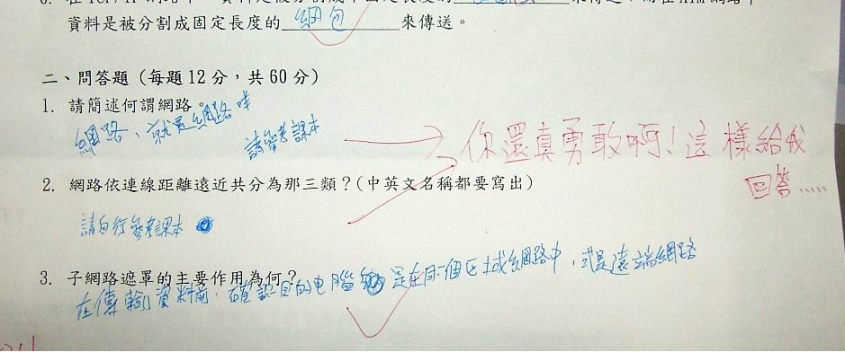 資料是被分割成固定長度的 網包 來傳送。
二、問答題（每題12分，共60分）
1. 請簡述何謂網路。
網路、就是網路咩
請參考課本
你還真勇敢啊！這樣給我
回答.....
2. 網路依連線距離遠近共分為那三類？(中英文名稱都要寫出)
請自行參考課本
3. 子網路遮罩的主要作用為何？
在傳輸資料前，確認目的电腦 是在同個區域網路中，或是遠端網路